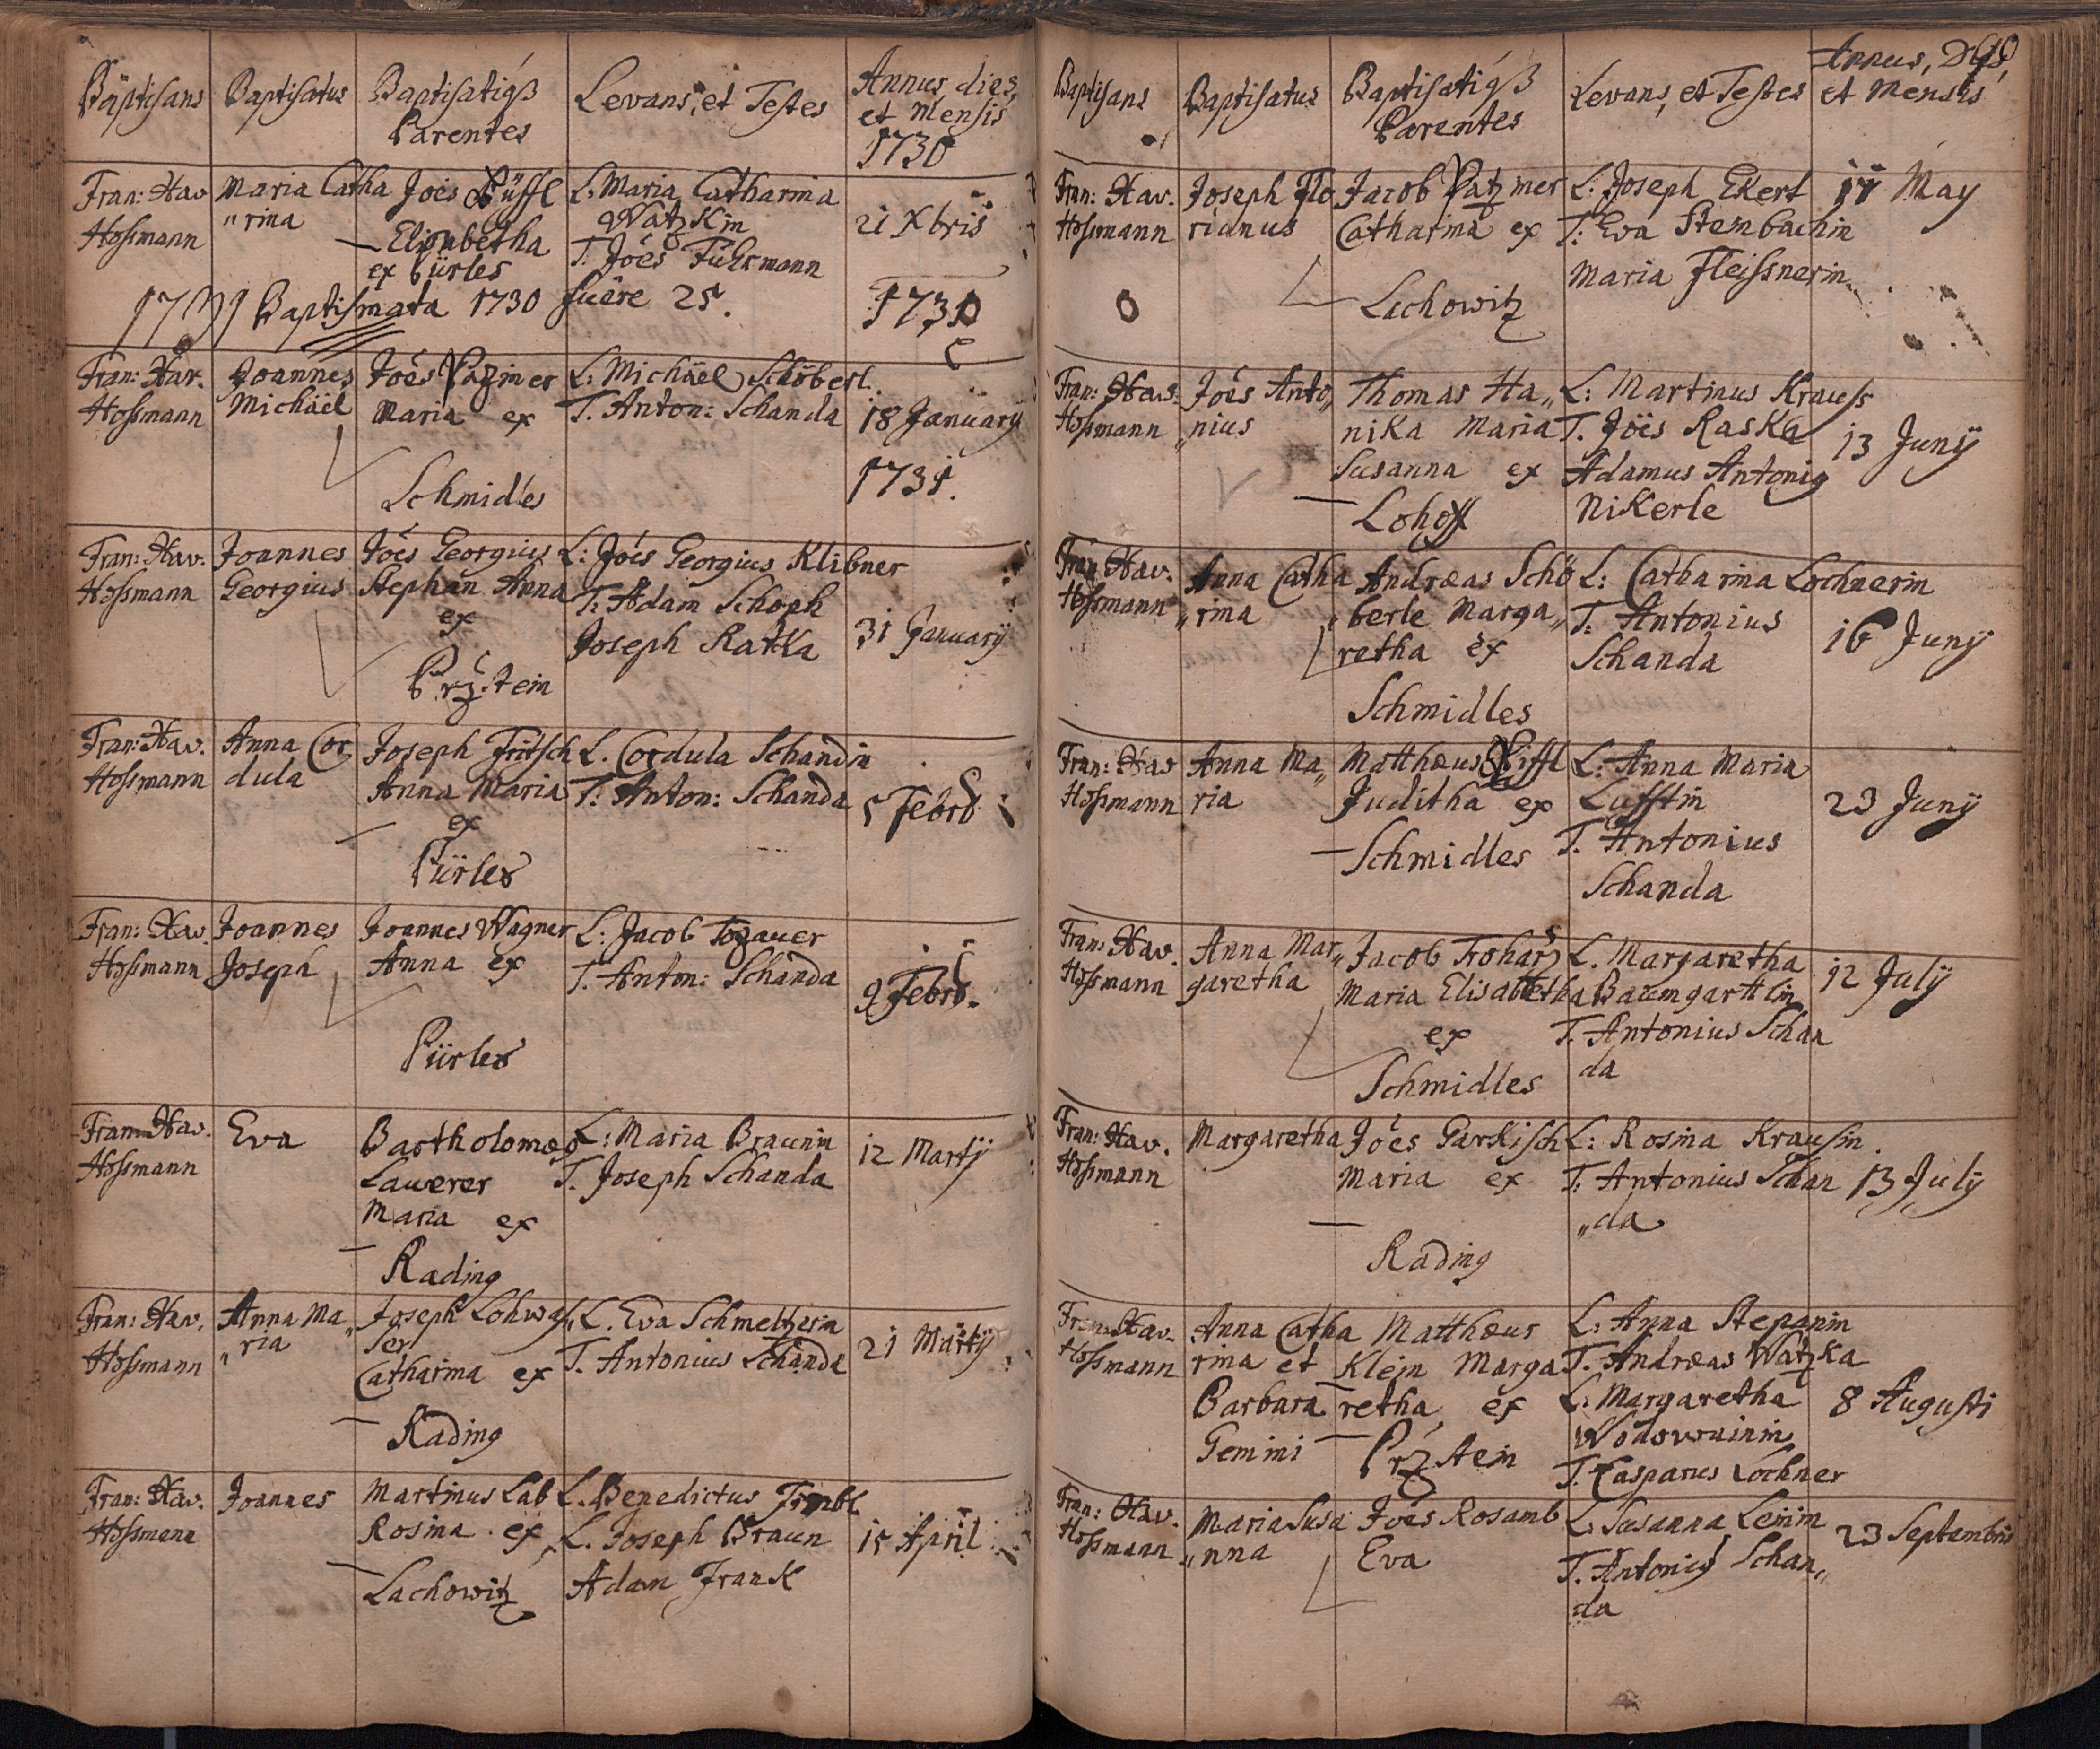 Baptisans Baptisatus Baptisatigß Parentes Levans, et Testes Annus, dies, et Mensis
1730
Fran: Xav. Hossmann
Maria Catha
"rina
Joes Püffl
Elisabetha
ex Pürles
L. Maria Catharina
Watzkin
T. Joes Fuhrmann
21 Xbris
1731 Baptismata 1730 fuere 25.
1731
Fran: Xav.
Hossmann
Joannes
Michäel
Joes Pazmer
Maria ex
Schmidles
L. Michäel Schöberl
T. Anton: Schanda
18 January
1731.
Fran: Xav.
Hossmann
Joannes
Georgius
Joes Georgius
Stephan Anna
ex
Prz:tein
L: Joes Georgius Klibner
T: Adam Schoph
Joseph Ratka
31 January
Fran: Xav.
Hossmann
Anna Cor
dula
Joseph Fritsch
Anna Maria
ex
Pürles
L. Cordula Schandin
T: Anton: Schanda
5 Febrü
Fran: Xav.
Hossmann
Joannes
Joseph
Joannes Wagner
Anna ex
Pürles
L: Jacob Tozauer
T. Anton: Schanda
9 Febrü.
Fran: Xav.
Hossmann
Eva
Bartholomæg
Lauerer
Maria ex
Rading
L: Maria Braunin
T. Joseph Schanda
12 Martÿ
Fran: Xav.
Hossmann
Anna Ma
"ria
Joseph Lohwas"
ser
Catharina ex
Rading
L. Eva Schmeltzerin
T. Antonius Schanda
21 Martÿ
Fran: Xav.
Hossmann
Joannes
Martinus Lab
Rosina ex
Lachowitz
L. Benedictus
L. Joseph Braun
Adam Frank
15 April
Baptisans Baptisatus Baptisatigß Parentes Levans, et Testes Annus, et Mensis
Fran: Xav.
Hossmann
Joseph Flo
rianus
Jacob Patzmer
Catharina ex
Lachowitz
L: Joseph Ekert
T: Eva Stembachin
Maria Fleissnerin
17 May
Fran: Xav.
Hossmann
Joes Anto"
"nius
Thomas Ha"
nika Maria
Susanna ex
Lohoff
L: Martinus Krauss
T. Joes Raska
Adamus Antonig
Nikerle
13 Junÿ
Fran: Xav.
Hossmann
Anna Catha
"rina
Andræas Schö
"berle Marga"
retha ex
Schmidles
L: Catharina Lochnerin
T: Antonius
Schanda
16 Junÿ
Fran: Xav
Hossmann
Anna Ma"
ria
Matthæus Piffl
Juditha ex
Schmidles
L: Anna Maria
Lufftin
T. Antonius
Schanda
23 Junÿ
Fran: Xav.
Hossmann
Anna Mar"
garetha
Jacob Trohar
Maria Elisabetha
ex
Schmidles
L. Margaretha
Baumgarttlin
T. Antonius Schan
da
12 Julÿ
Fran: Xav.
Hossmann
Margaretha
Joes Garkisch
Maria ex
Rading
L: Rosina Krausin
T: Antonius Schan
"da
13 July
Fran: Xav.
Hossmann
Anna Catha
rina et
Barbara
Gemini
Matthæus
Klejn Marga
retha ex
Prz:tein
L: Anna Stepanin
T. Andræas Watzka
L: Margaretha
T. Casparus Lochner
8 Augusti
Fran: Xav.
Hossmann
Maria Susa
"nna
Joes Rosamb
Eva
L: Susanna
T. Antonig Schan"
da
23 Septembris